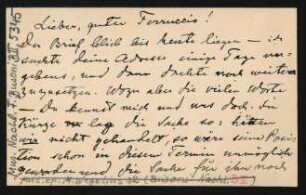 Lieber, guter Ferruccio!
Der Brief blieb bis heute liegen — ich
suchte deine Adresse einige Tage ver-
gebens, und dann dachte noch weiter
zuzusetzen. Wozu aber die vielen Worte
du kennst mich und was doch, die
Kürze lag die Sache so: hätten
wir nicht gehandelt, so wäre seine Posi-
tion schon in diesem Termin unmöglich
geworden und die Sache für ihn noch
Mus. Nachl. F. Busoni B II, 5345
Mus. ep. (Busoni-Nachl.